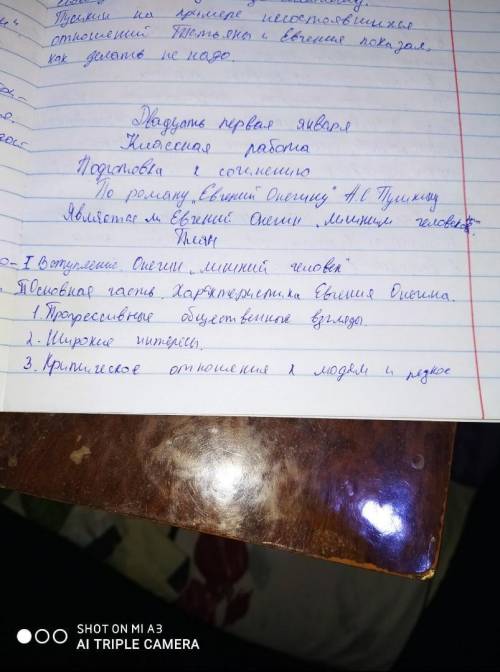 Пушкин на примере несостоявшихся
отношений Татьяны и Евгения показал,
как делать не надо.
Двадцать первая января
Классная работа
Подготовка к сочинению
По роману "Евгений Онегину" А.С Пушкину
Является ли Евгений Онегин "лишним человеком"
План
I Вступление. Онегин "лишний человек"
II Основная часть. Характеристика Евгения Онегина.
1. Прогрессивные общественные взгляды.
2. Широкие интересы.
3. Критическое отношения к людям и редкое
SHOT ON MI A3
AI TRIPLE CAMERA